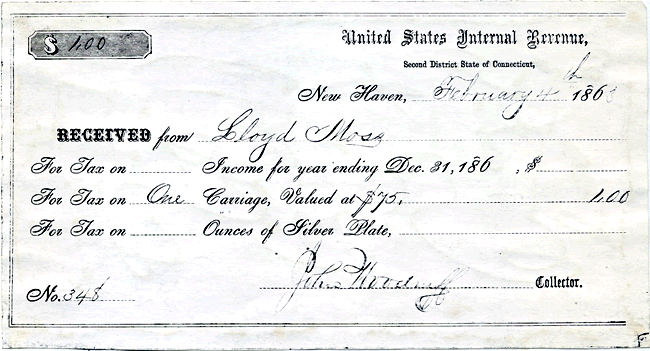 $ 1.00
United States Internal Revenue,
Second District State of Connecticut,
New Haven, February 4th 1863
RECEIVED from Lloyd Moss
For Tax on Income for year ending Dec. 31, 186 , $
For Tax on One Carriage, Valued at $75. 1.00
For Tax on Ounces of Silver Plate,
John Woodruff Collector.
No. 348